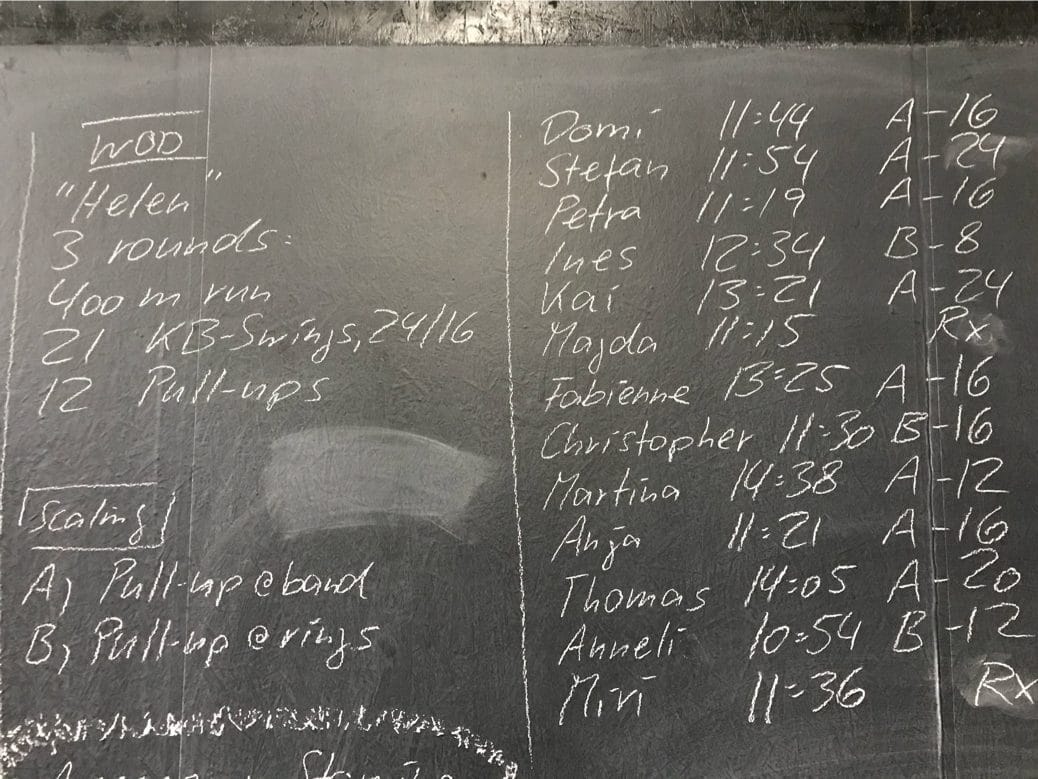 WOD
"Helen"
3 rounds:
400 m run
21 KB-Swings, 24/16
12 Pull-ups
Scaling
A) Pull-up @ band
B) Pull-up @ rings
Domi 11:44 A-16
Stefan 11:54 A-24
Petra 11:19 A-16
Ines 12:34 B-8
Kai 13:21 A-24
Majda 11:15 Rx
Fabienne 13:25 A-16
Christopher 11:30 B-16
Martina 14:38 A-12
Anja 11:21 A-16
Thomas 14:05 A-20
Anneli 10:54 B-12
Miri 11:36 Rx